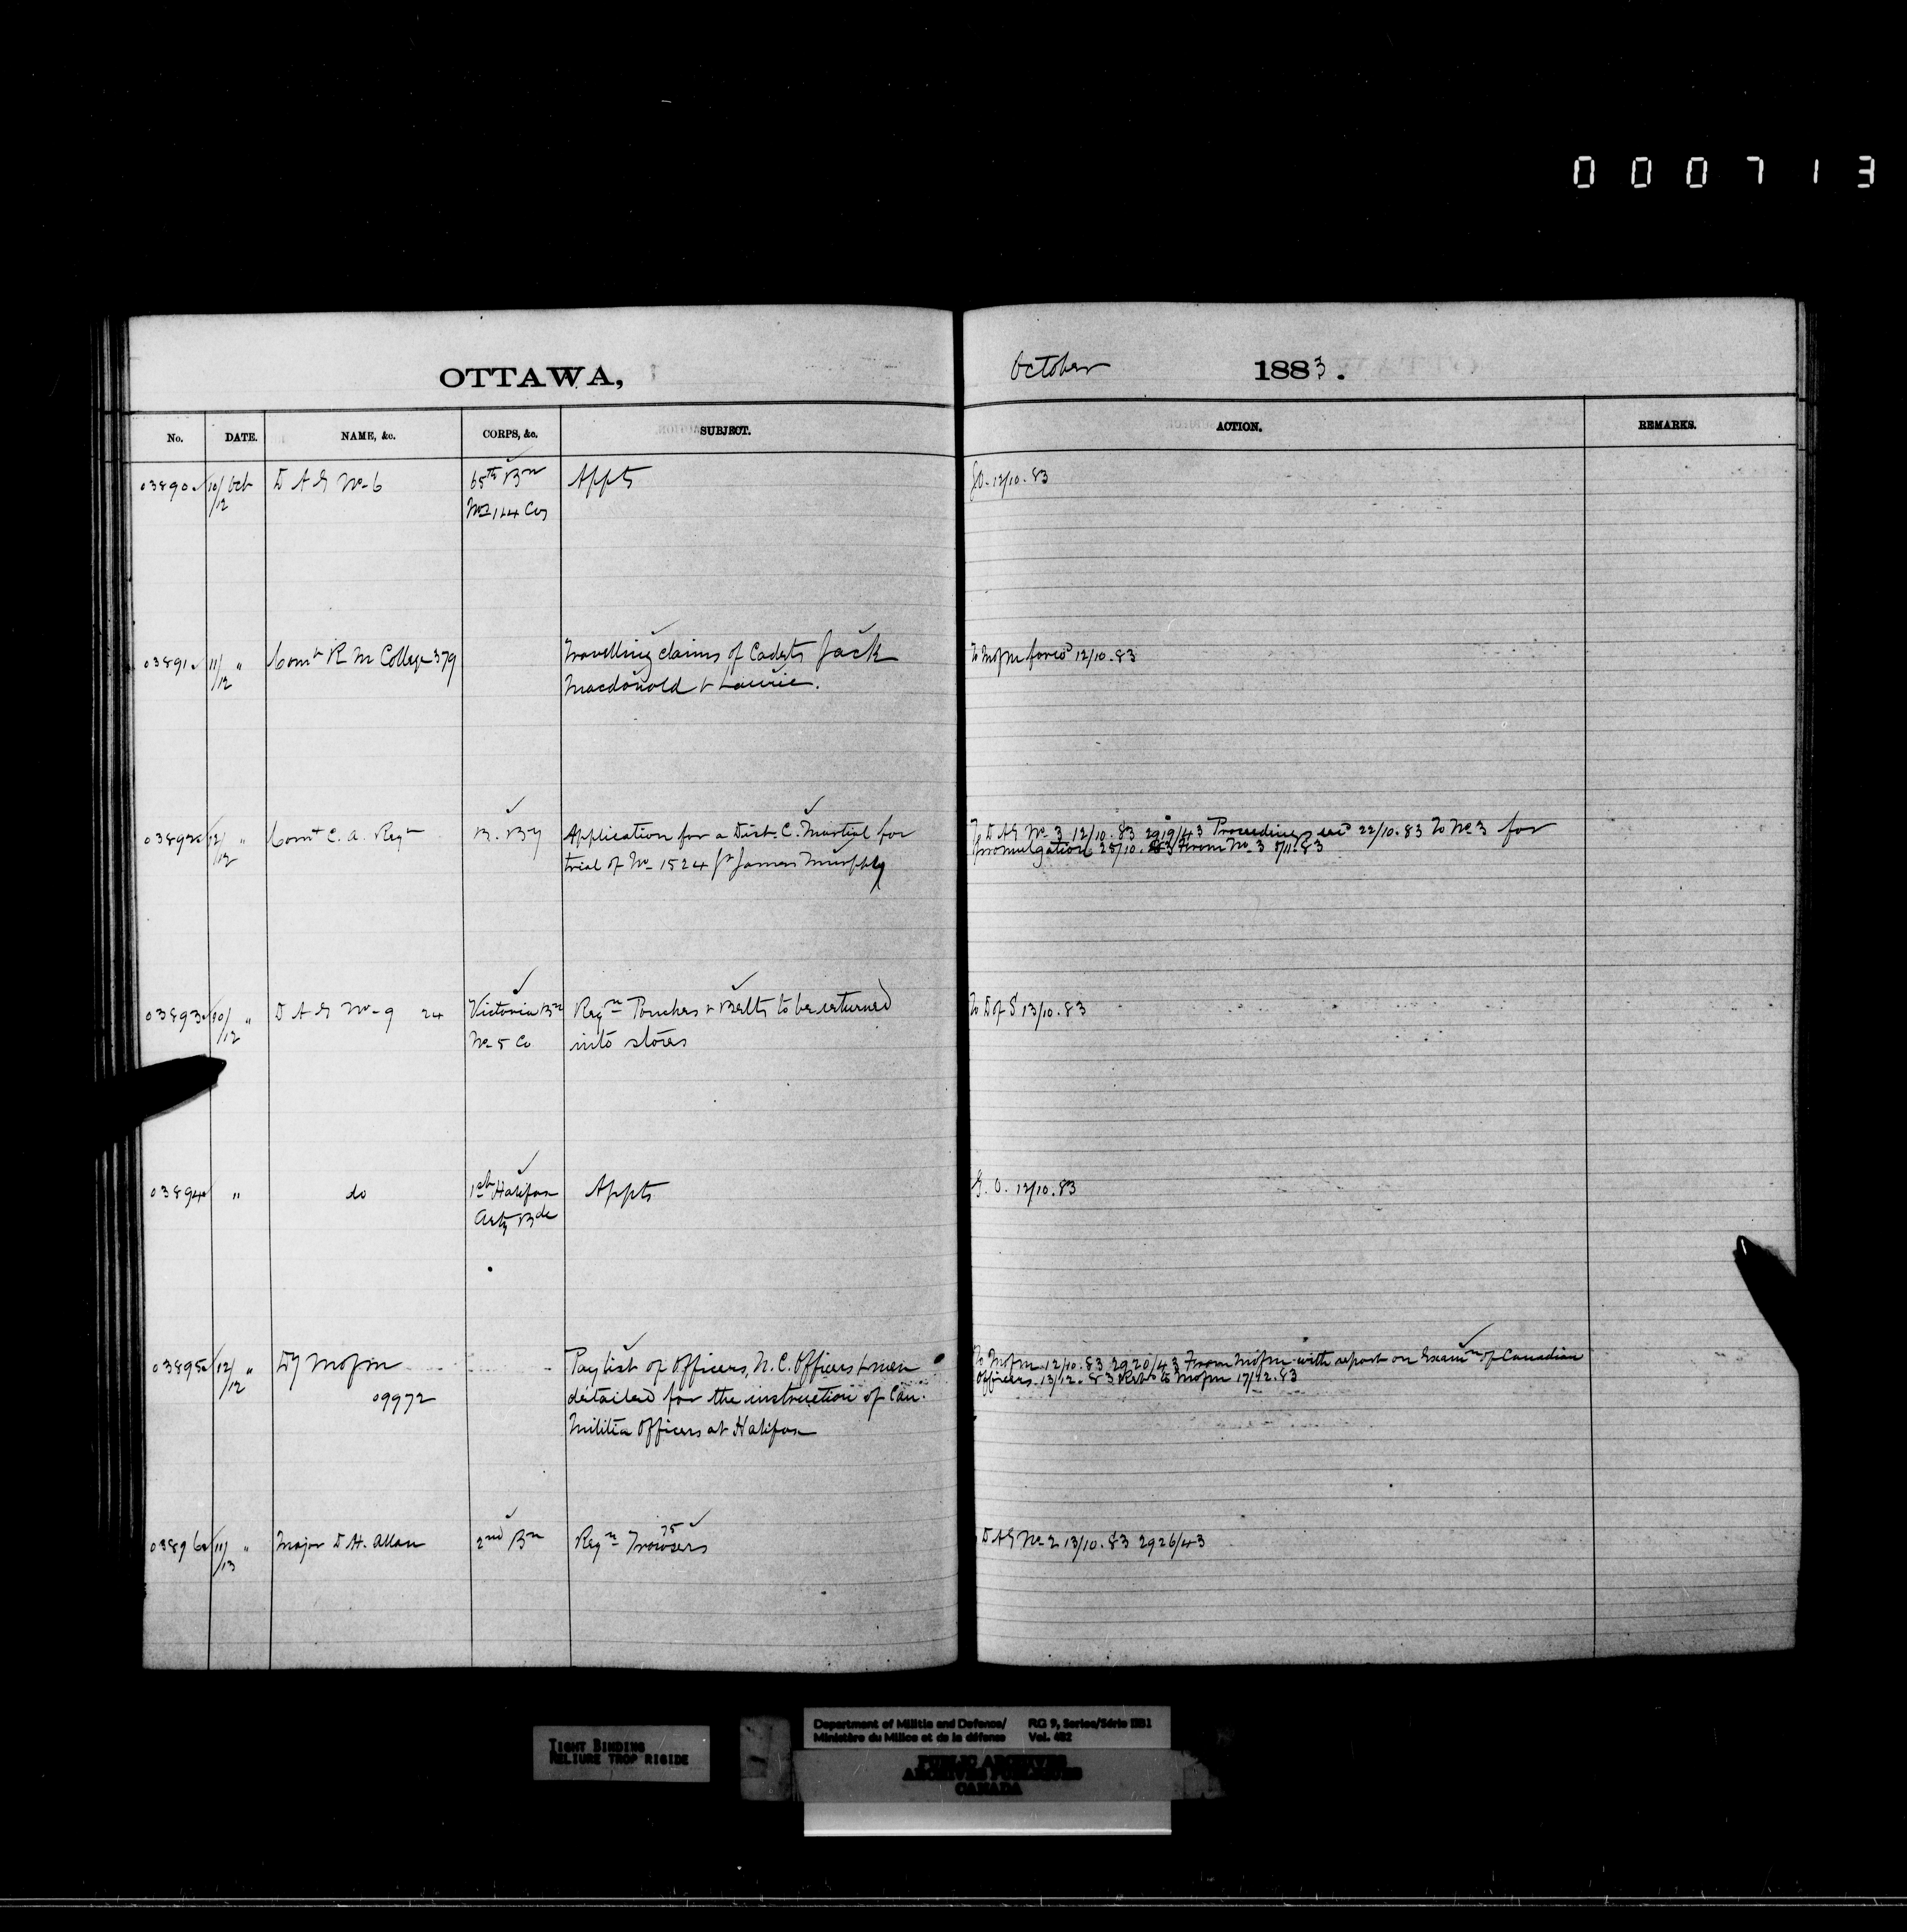 000713
OTTAWA,
October 1883.
No. DATE. NAME, &c. CORPS, &c. SUBJECT. ACTION. REMARKS.
03890 10/12 Oct D A G No 6 65th Bn Appts G.O. 12/10.83
Nos 1 & 4 Coys
03891 11/12 " Comt R M College 379 Travelling claims of Cadets Jack To MofM forwd 12/10.83
Macdonald & Laurie.
03892 12/12 " Comt C. A. Regt B. By Application for a Dist. C. Martial for To D A G No 3 12/10.83 2919/43 Proceedings recd 22/10.83 To No 3 for
trial of No 1524 Gr James Murphy promulgation 25/10.83 From No 3 5/11.83
03893 10/12 " D A G No 9 24 Victoria Bn Reqn Pouches & Belts to be returned To D of S 13/10.83
No 5 Co into stores
03894 " do 1st Halifax Appts G.O. 12/10.83
Arty Bde
03895 12/12 " Dy MofM Pay list of Officers, N.C. Officers & men To MofM 12/10.83 2920/43 From MofM with report on Examn of Canadian
09972 detailed for the instruction of Can. Officers 13/12.83 Retd to MofM 17/12.83
Militia Officers at Halifax
03896 11/13 " Major D. H. Allan 2nd Bn Reqn 75 Trowsers D A G No 2 13/10.83 2926/43
TIGHT BINDING
RELIURE TROP RIGIDE
Department of Militia and Defence/ RG 9, Series/Série IIB1
Ministère du Milice et de la défense Vol. 482
PUBLIC ARCHIVES
ARCHIVES PUBLIQUES
CANADA